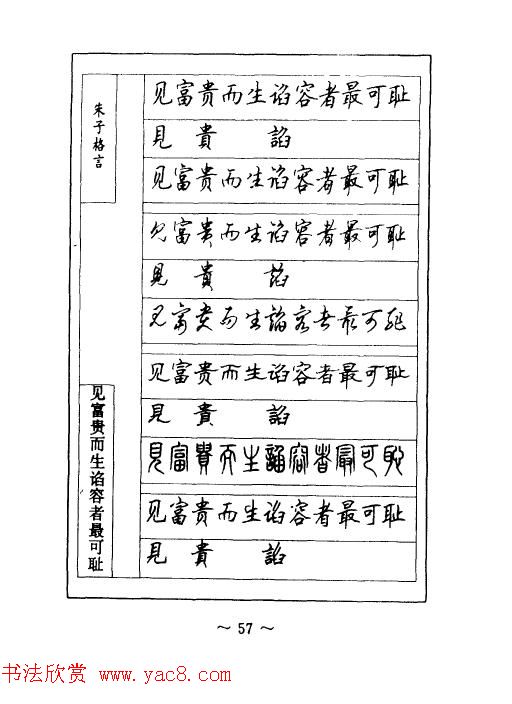 朱子格言
见富贵而生谄容者最可耻
见富贵而生谄容者最可耻
見 貴 諂
见富贵而生谄容者最可耻
见富贵而生谄容者最可耻
見 貴 諂
见富贵而生谄容者最可耻
见富贵而生谄容者最可耻
見 貴 諂
見富貴而生諂容者最可恥
见富贵而生谄容者最可耻
見 貴 諂
～ 57 ～
书法欣赏 www.yac8.com